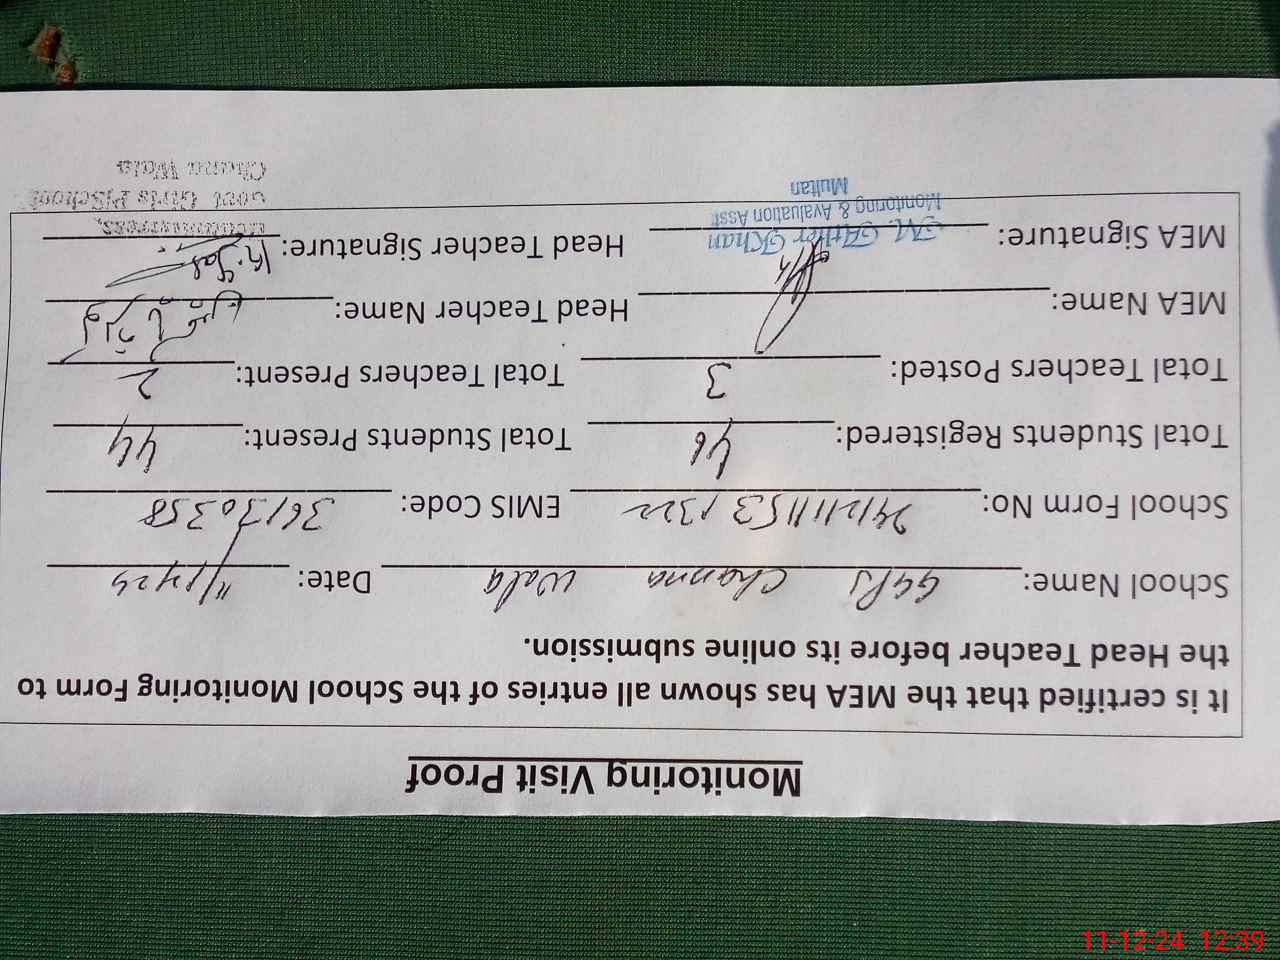 Monitoring Visit Proof
It is certified that the MEA has shown all entries of the School Monitoring Form to
the Head Teacher before its online submission.
School Name: GGPS Channa Wala Date:
School Form No: EMIS Code: 36130358
Total Students Registered: 46 Total Students Present: 44
Total Teachers Posted: 3 Total Teachers Present: 2
MEA Name: Head Teacher Name:
MEA Signature: Head Teacher Signature:
M. Ather Khan
Monitoring & Evaluation Asst
Multan
Headmistress,
Govt Girls P/School
Channa Wala
11-12-24 12:39